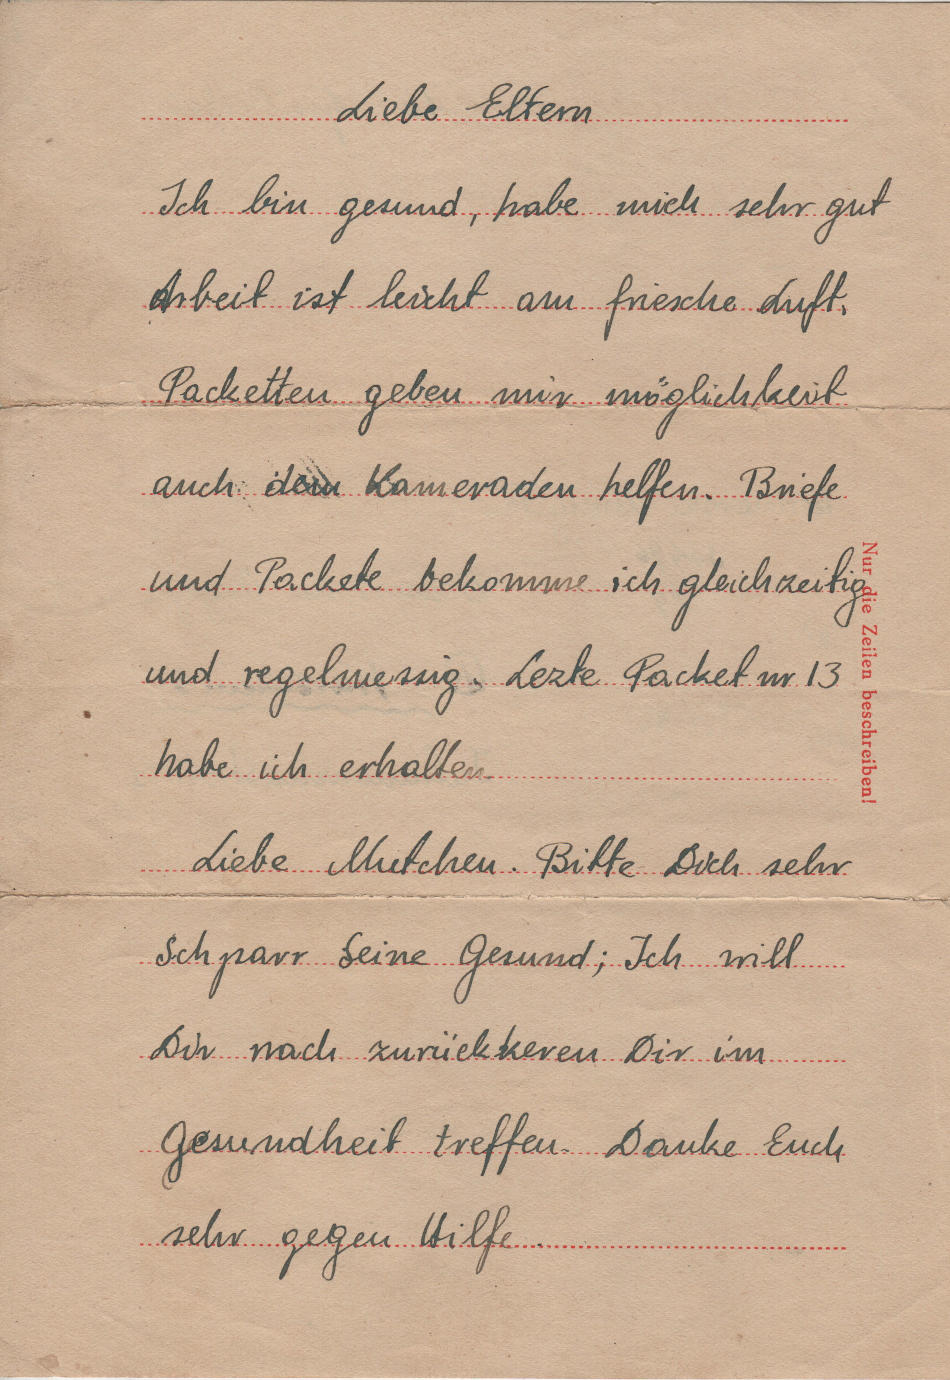 Liebe Eltern
Ich bin gesund, habe mich sehr gut
Arbeit ist leicht am friesche Luft.
Packetten geben mir möglichkeit
auch dem Kameraden helfen. Briefe
und Packete bekomme ich gleichzeitig
und regelmessig. Lezte Packet nr 13
habe ich erhalten
Liebe Mutchen. Bitte Dich sehr
Schparr Seine Gesund; Ich will
Dir nach zurückkeren Dir im
Gesundheit treffen. Danke Euch
sehr gegen Hilfe.
Nur die Zeilen beschreiben!